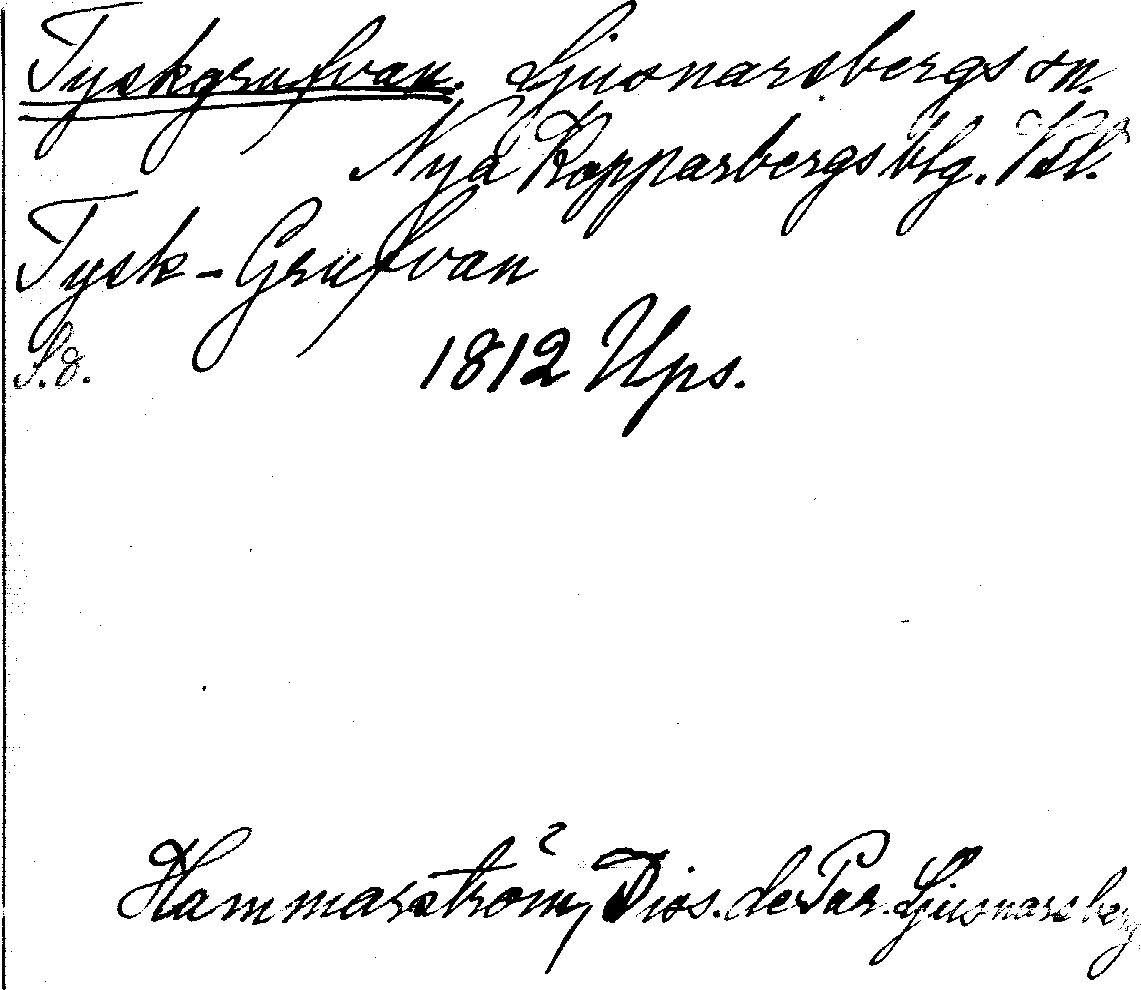 Tyskgrufvan. Ljusnarsbergs sn.
Nya Kopparbergs blg. Vstl.
Tysk-Grufvan
S. 8. 1812 Ups.
Hammarström, Diss. de Par. Ljusnarsberg